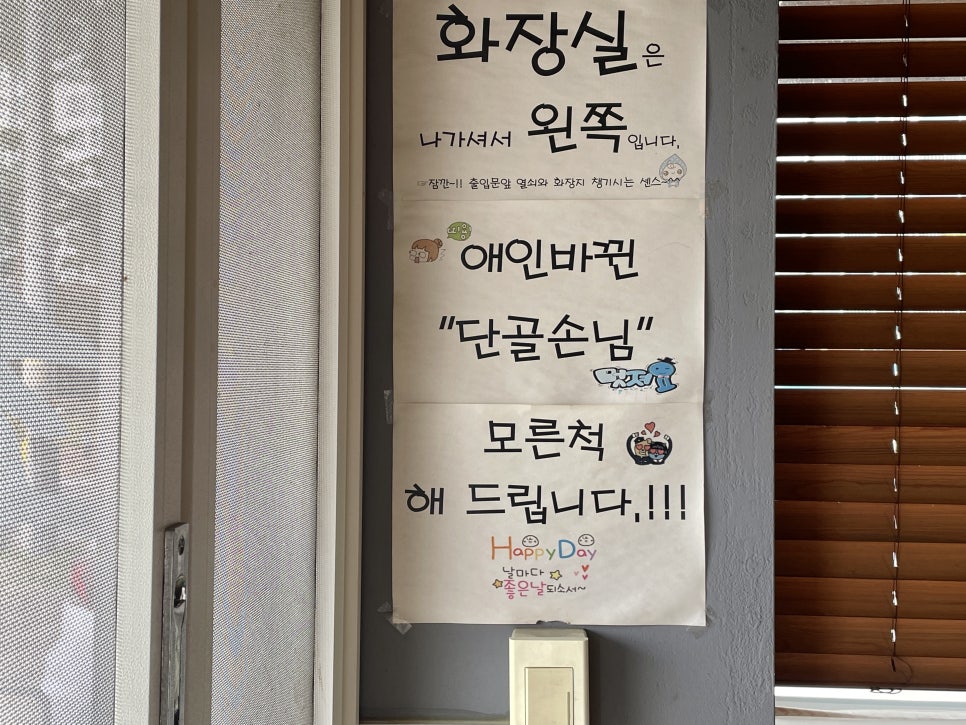 화장실은
나가셔서 왼쪽입니다.
☞잠깐~!! 출입문앞 열쇠와 화장지 챙기시는 센스~^^
애인바뀐
"단골손님"
멋져요
모른척
해 드립니다.!!!
Happy Day
날마다
좋은날되소서~